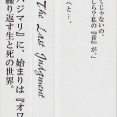 てじゃないの。
しろ？私の『音』が。」
へと…。
The Last Judgment
ハジマリ』に、始まりは『オワ
繰り返す生と死の世界。